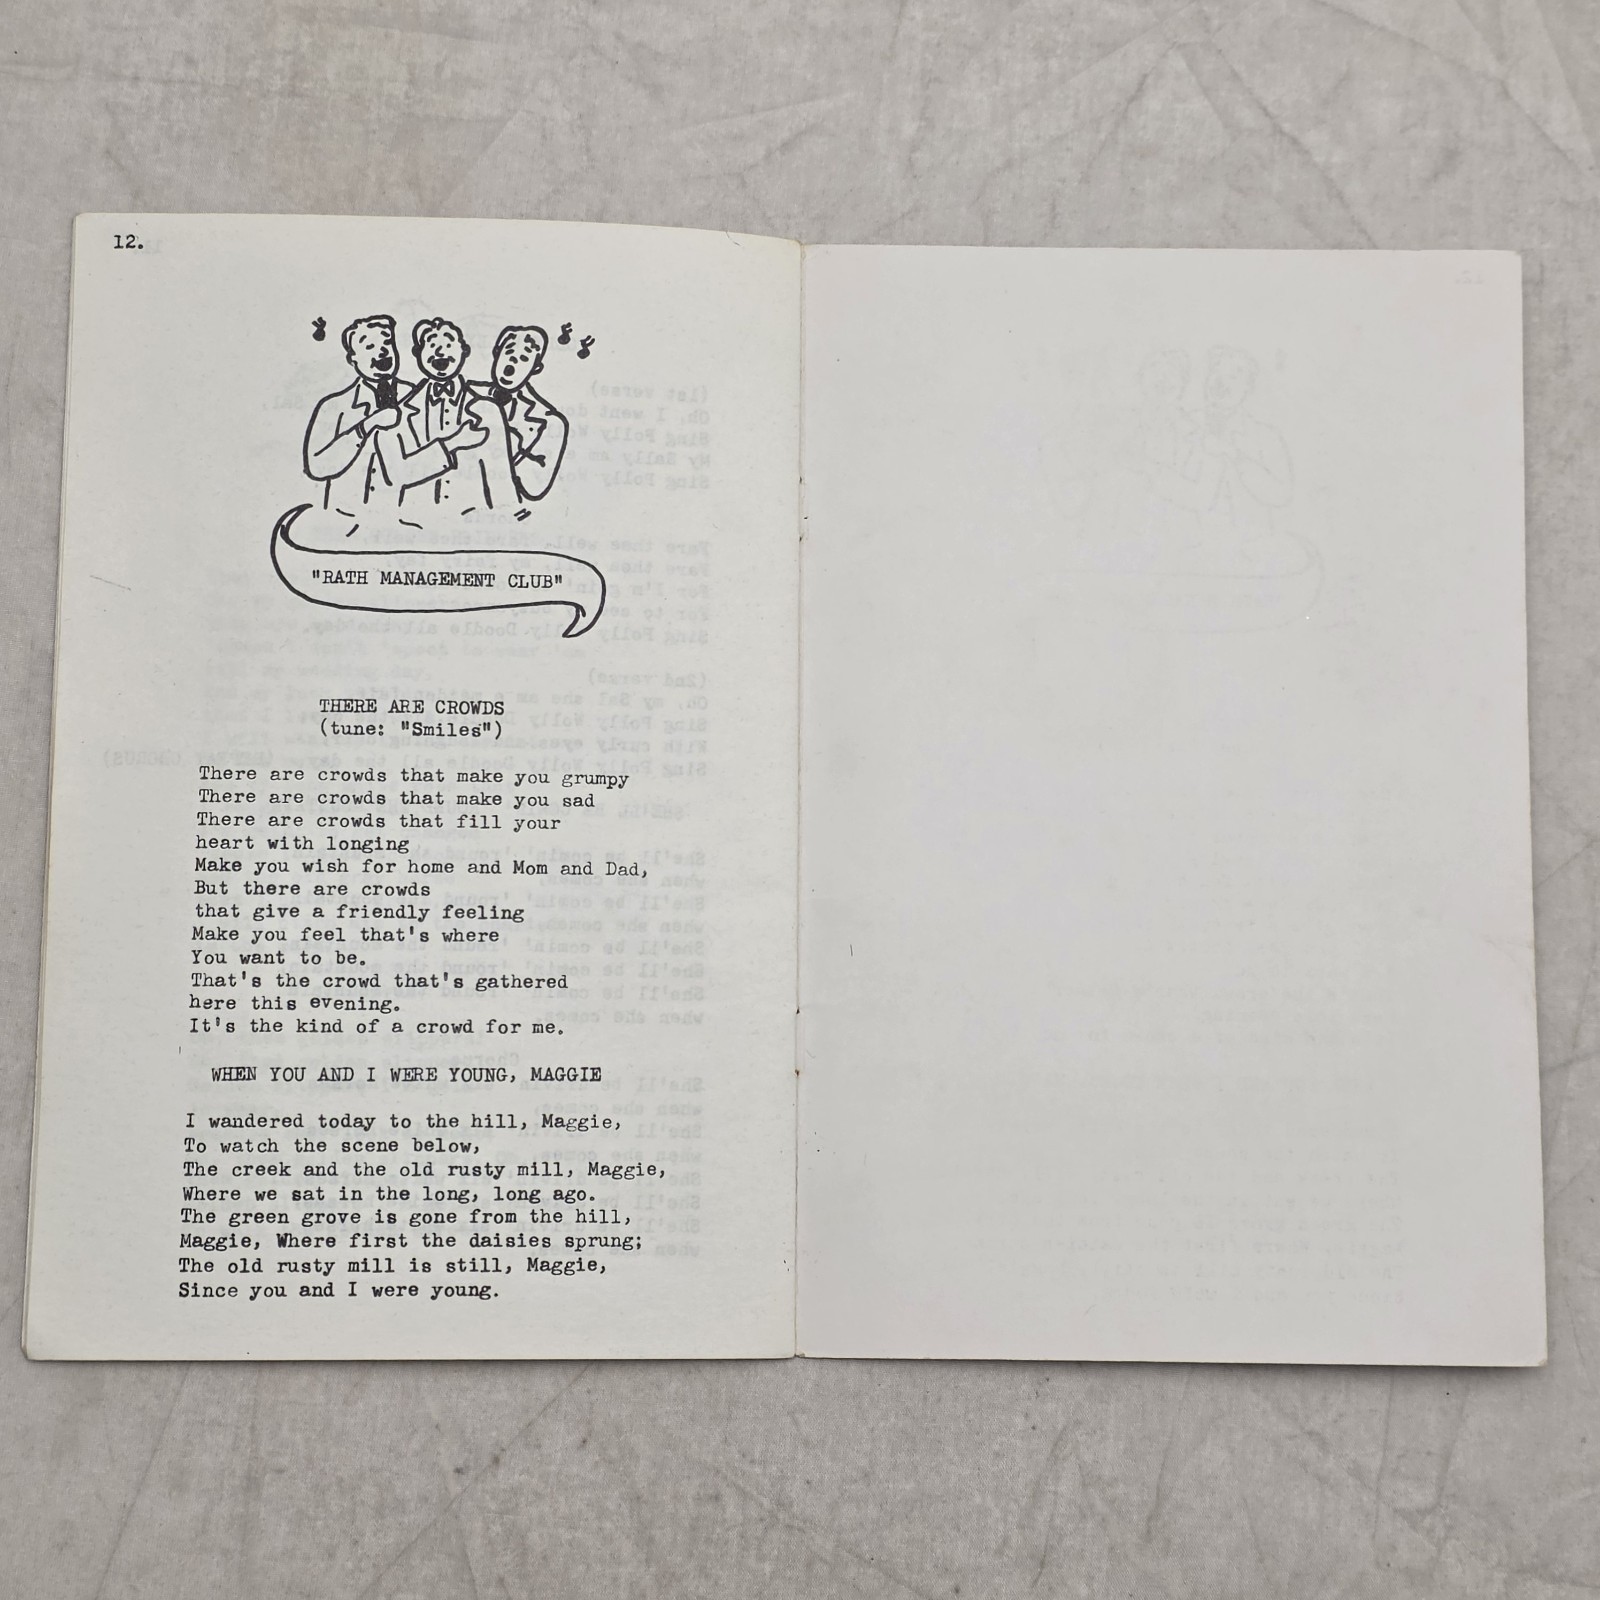 12.
"RATH MANAGEMENT CLUB"
THERE ARE CROWDS
(tune: "Smiles")
There are crowds that make you grumpy
There are crowds that make you sad
There are crowds that fill your
heart with longing
Make you wish for home and Mom and Dad,
But there are crowds
that give a friendly feeling
Make you feel that's where
You want to be.
That's the crowd that's gathered
here this evening.
It's the kind of a crowd for me.
WHEN YOU AND I WERE YOUNG, MAGGIE
I wandered today to the hill, Maggie,
To watch the scene below,
The creek and the old rusty mill, Maggie,
Where we sat in the long, long ago.
The green grove is gone from the hill,
Maggie, Where first the daisies sprung;
The old rusty mill is still, Maggie,
Since you and I were young.